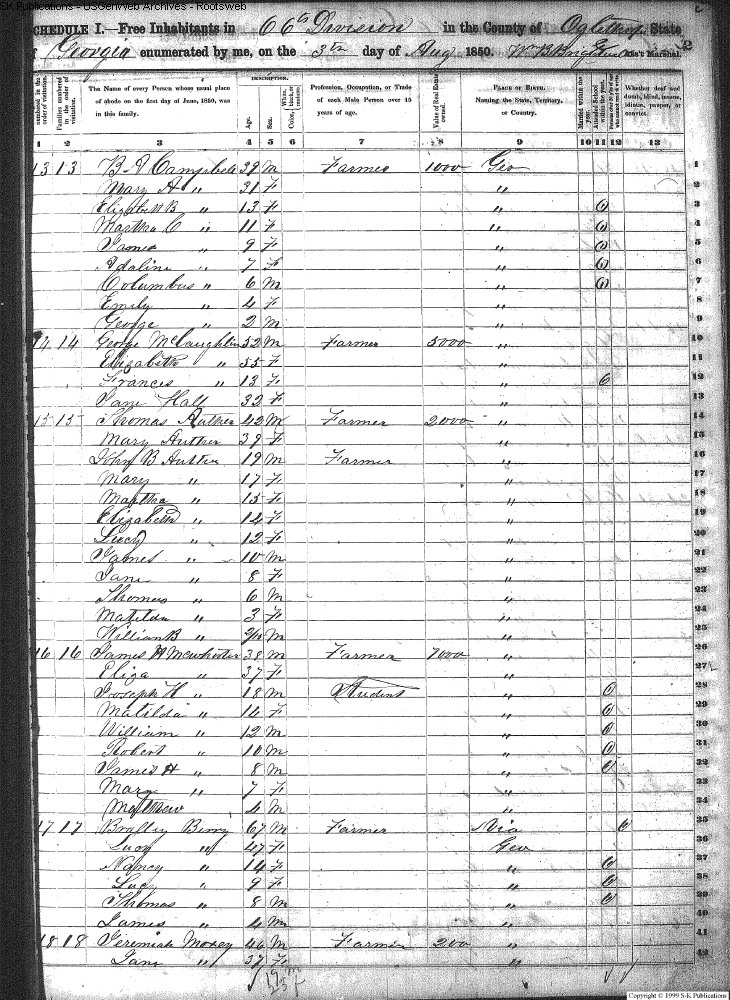 S-K Publications - USGenWeb Archives - Rootsweb
SCHEDULE I.—Free Inhabitants in 66th Division in the County of Oglethorp State
of Georgia enumerated by me, on the 3th day of Aug 1850. Ass't Marshal. 2
Dwelling-houses numbered in the order of visitation. Families numbered in the order of visitation. The Name of every Person whose usual place of abode on the first day of June, 1850, was in this family. DESCRIPTION. Age. Sex. Color, White, black, or mulatto. Profession, Occupation, or Trade of each Male Person over 15 years of age. Value of Real Estate owned. PLACE OF BIRTH. Naming the State, Territory, or Country. Married within the year. Attended School within the year. Persons over 20 y'rs of age who cannot read & write. Whether deaf and dumb, blind, insane, idiotic, pauper, or convict.
1 2 3 4 5 6 7 8 9 10 11 12 13
13 13 Campbell 39 M Farmer 1000 Geo 1
Mary A " 31 F " 2
Elizabeth B " 13 F " 3
Martha C " 11 F " 4
" 9 F " 5
Adaline " 7 F " 6
Columbus " 6 M " 7
Emily " 4 F " 8
George " 2 M " 9
14 14 George McLaughlin 52 M Farmer 5000 " 10
Elizabeth " 55 F " 11
Frances " 13 F " 12
Jane Hall 32 F " 13
15 15 Thomas 42 M Farmer 2000 " 14
Mary 39 F " 15
John B 19 M Farmer " 16
Mary " 17 F " 17
Martha " 15 F " 18
Elizabeth " 14 F " 19
Lucy " 12 F " 20
James " 10 M " 21
Jane " 8 F " 22
Thomas " 6 M " 23
Matilda " 3 F " 24
William B " M " 25
16 16 James H McWhorter 38 M Farmer 7000 " 26
Eliza " 37 F " 27
Joseph H " 18 M Student " 28
Matilda " 14 F " 29
William " 12 M " 30
Robert " 10 M " 31
James H " 8 M " 32
Mary " 7 F " 33
Mathew 4 M " 34
17 17 Bradley Berry 67 M Farmer Via 35
Lucy " 47 F Geo 36
Nancy " 14 F " 37
Lucy " 9 F " 38
Thomas " 8 M " 39
James " 4 M " 40
18 18 Jeremiah Maxey 46 M Farmer 200 " 41
Jane " 37 F " 42
19 M
23 F
Copyright © 1999 S-K Publications